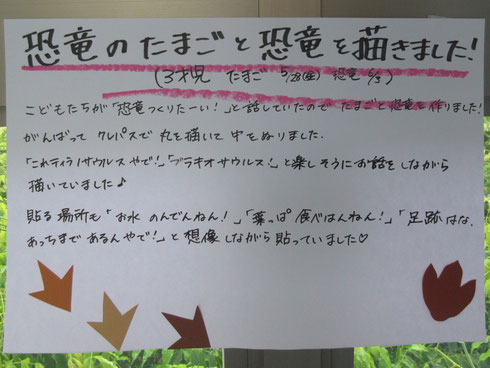 恐竜のたまごと恐竜を描きました!
(3才児 たまご 5/28(金) 恐竜 6/3)
こどもたちが「恐竜つくりたーい!」と話していたので たまごと恐竜を作りました!
がんばって クレパスで 丸を描いて 中をぬりました.
「これティラノサウルスやで!」「ブラキオサウルス!」と楽しそうにお話をしながら
描いていました♪
貼る場所も「お水 のんでんねん!」「葉っぱ 食べはんねん!」「足跡はな、
あっちまで あるんやで!」と 想像しながら 貼っていました♡